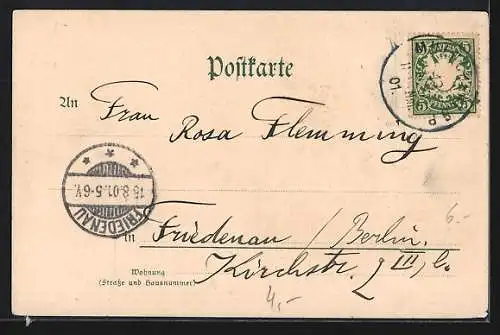 Postkarte
An Frau
Rosa Flemming
in Friedenau / Berlin.
Wohnung
(Straße und Hausnummer)
Kirchstr. 9 III, l.
FRIEDENAU
18.8.01.5-6V.
01.
BAYERN
5 5
6.-
4,-